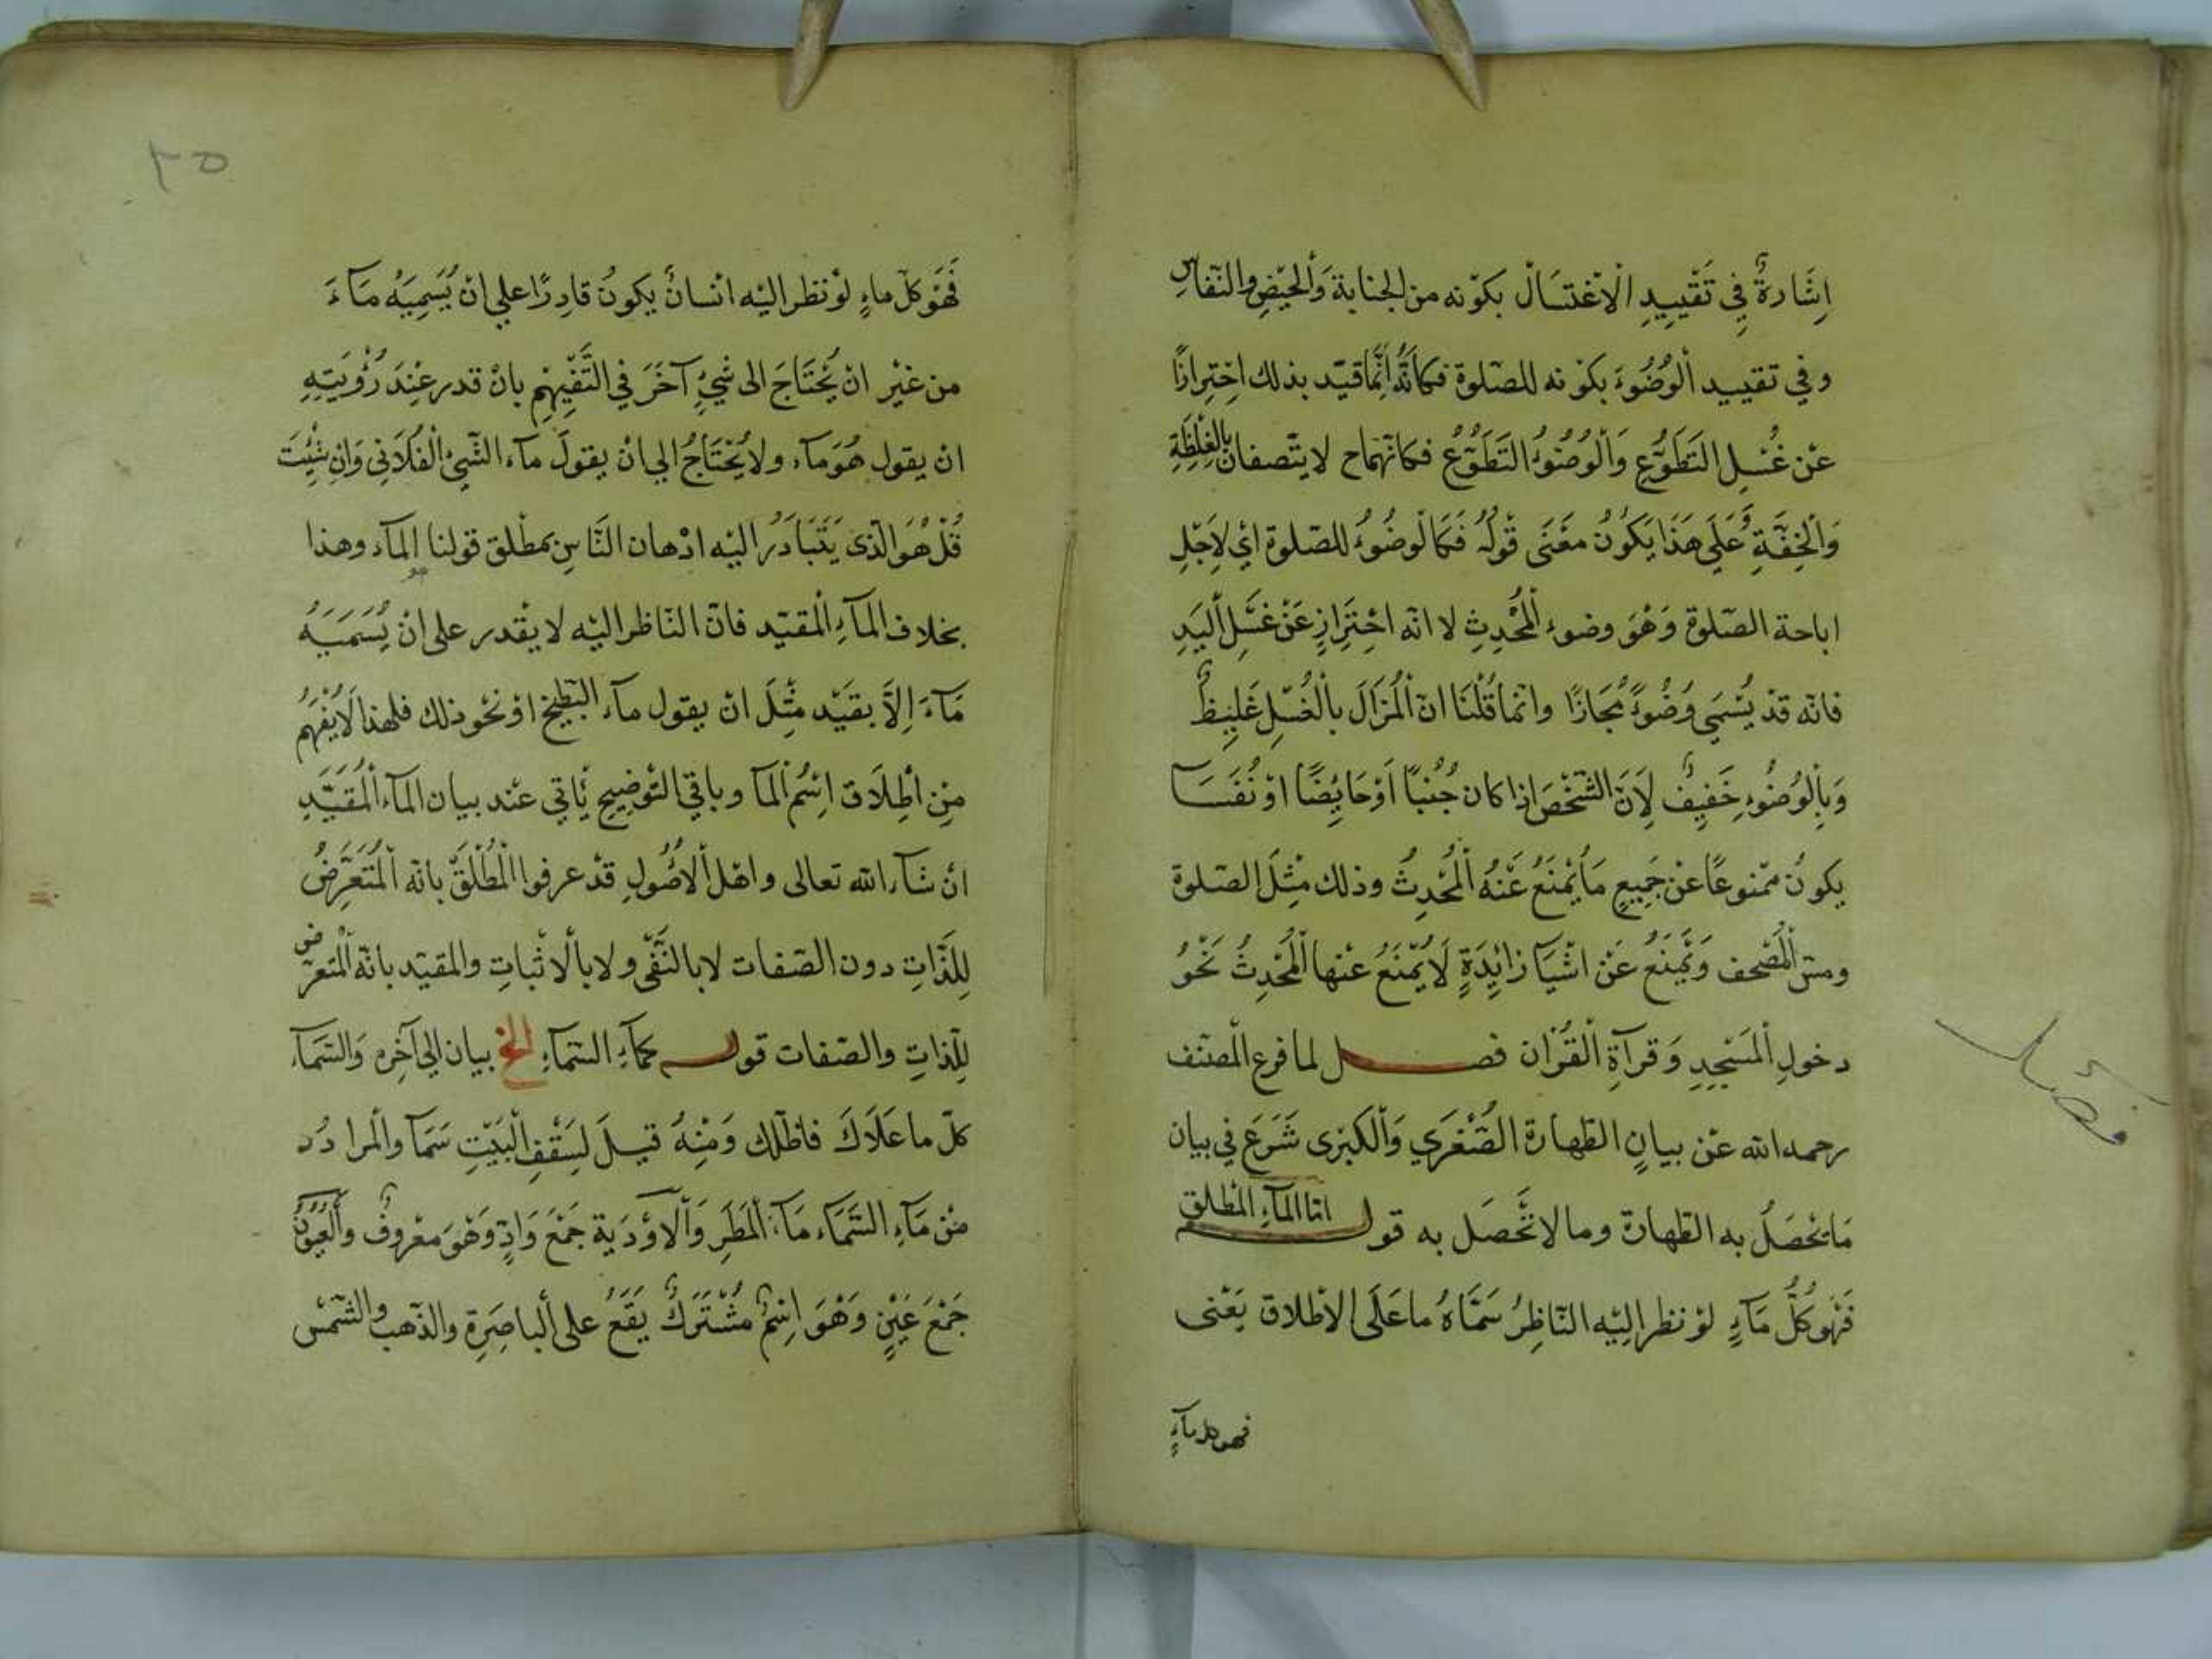 اِشَارةٌ فِي تَقْيِيدِ الْاغْتسَالْ بكوْنه من الجنابة وَالْحَيْضِ والنّفاسِ
وفي تقييد الْوُضُوءَ بكوْنه للصّلوة فكاَنَّهُ اِنَّمَا قيّد بذلك احْتِرازًا
عَن غُسْلِ التَطَوُّعِ وَالْوُضُوءُ التَطَوُّعُ فكانّهمَا ح لا يتّصفان بالْغِلْظَةِ
وَالْخِفَّةِ عَلَي هَذَا يَكُونُ معْنَى قَوْلُهُ فَكَمَا لْوضُوءُ للصّلوة ايْ لِاَجْلِ
اباحة الصّلوة وَهْوَ وضوءِ الْمُحْدِثِ لا انّه احْتِرَازٍ عَنْ غَسْلِ الْيَدِ
فانّه قدْ يُسْمَي وُضُوءً مُجَازًا وانّما قُلْنَا انّ الْمُزَالَ بالْغُسْلِ غَلِيظٌ
وَبِالْوُضُوءِ خَفِيفٌ لِاَنّ الشّخْصَ اذا كان جُنبًا اَوْ حَايِضًا اوْ نُفَسَآ
يكونُ ممْنوعًا عَنْ جَمِيعِ مَا يُمْنَعُ عَنْهُ الْمُحْدِثُ وذلك مثْلَ الصّلوة
ومسّ الْمُصْحف وَيُمْنَعُ عَنْ اشْيَآ زائِدَةٍ لَا يُمْنَعُ عنْها الْمُحْدِثُ نَحْوُ
دخولِ الْمَسْجِدِ وَقرآةِ الْقُرْان فصل لما فرع الْمصنّف
رحمه الله عَن بيانِ الطّهارة الصُّغْرَي وَالْكبرى شَرَعَ في بيان
مَا يحْصَلُ به الطّهارة وما لا تَحْصَل به قوله امّا المآءِ المْطلق
فَهُو كُلُّ مَآءٍ لوْ نظر الَيْه النّاظِرُ سَمَّاهُ ما عَلَى الاطلاق يَعْنى
فهو كل مآءٍ
فصل
٢٥
فَهُوَ كلّ ماءٍ لوْ نظر اليْه انْسانٌ يكونُ قادِرًا علي انْ يُسَمِيَهُ مَآءَ
من غيْر انْ يُحْتَاجَ الى شيْءٍ آخَرَ في التَّفْهِيْمِ بانْ قدر عِنْدَ رُؤْيَتِهِ
انْ يقول هُوَ مَآء ولا يُحْتَاجُ الي انْ يقولَ مآء الشّيْءُ الْفُلَانِي وَانِ شْئِتَ
قُلْ هُوَ الّذى يَتَبَادَرُ اليْه اذْهان النَّاسِ بمطْلق قوْلنا المآء وهذا
بخلاف المآءِ الْمقيّد فانّ النّاظر اليْه لا يقْدر على انْ يُسَمَيَهُ
مَّآءَ اِلَّا بقيْد مثْلَ انْ يقول مآء البّطيخ اوْ نحْو ذلك فلهذا لَا يُفْهَمُ
مِن اطِلَاق اسْمُ الْمآ وباقي التّوضِيحِ يَأتي عنْد بيان المآء الْمُقَيَّدِ
انْ شآء الله تعالى واهْل الْاصُولِ قدْ عرفوا الْمُطْلَقَ بانّه الْمُتَعَرِّضُ
لِلذّاتِ دون الصّفات لا بالنّفْى ولا بالْاثْبات والمقيّد بانّه الْمتعرّض
للّذاتِ والصّفات قوله كمآءِ السّمآءِ الخ بيان الي آخِره وَالسَّمَآء
كلّ ما عَلَاكَ فاظلك وَمنْهُ قيلَ لِسَقْفِ الْبَيْتِ سَمَآ والْمراد
منْ مَآءِ السَّمَآء مَآءَ الْمَطَرِ وَالْاوْدَية جَمْعَ وَادٍ وَهْوَ معْروفٌ والْعُيُوْنُ
جَمْعَ عَيْنٍ وَهْوَ اسْمٌ مُشْتَرَكٌ يَقَعُ على الْباصِرَةِ والذّهب والشّمْس